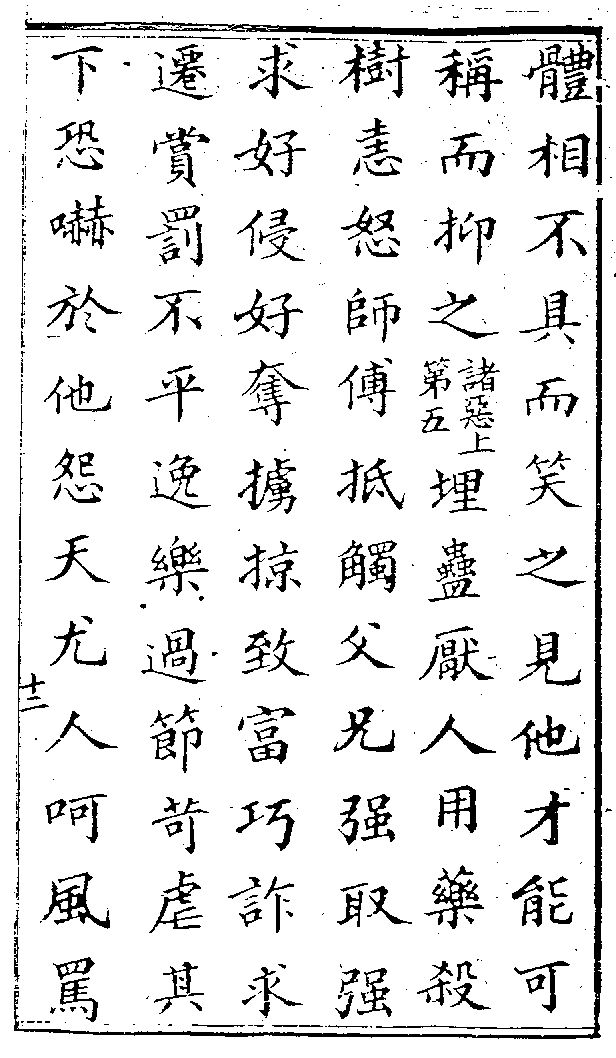 體相不具而笑之見他才能可
稱而抑之諸惡上第五埋蠱厭人用藥殺
樹恚怒師傅抵觸父兄强取强
求好侵好奪擄掠致富巧詐求
遷賞罰不平逸樂過節苛虐其
下恐嚇於他怨天尤人呵風罵
十二